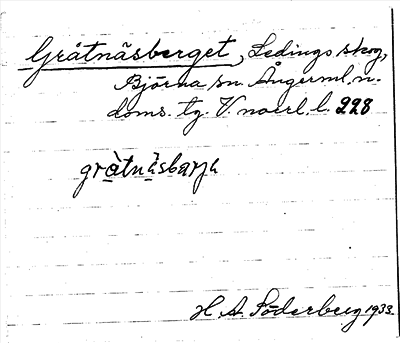 Gråtnäsberget, Ledings skog,
Björna sn. Ångerml. n.
doms. tg. V. noerl. l. 228
gràtnàsbarja
H. A. Söderberg 1933.